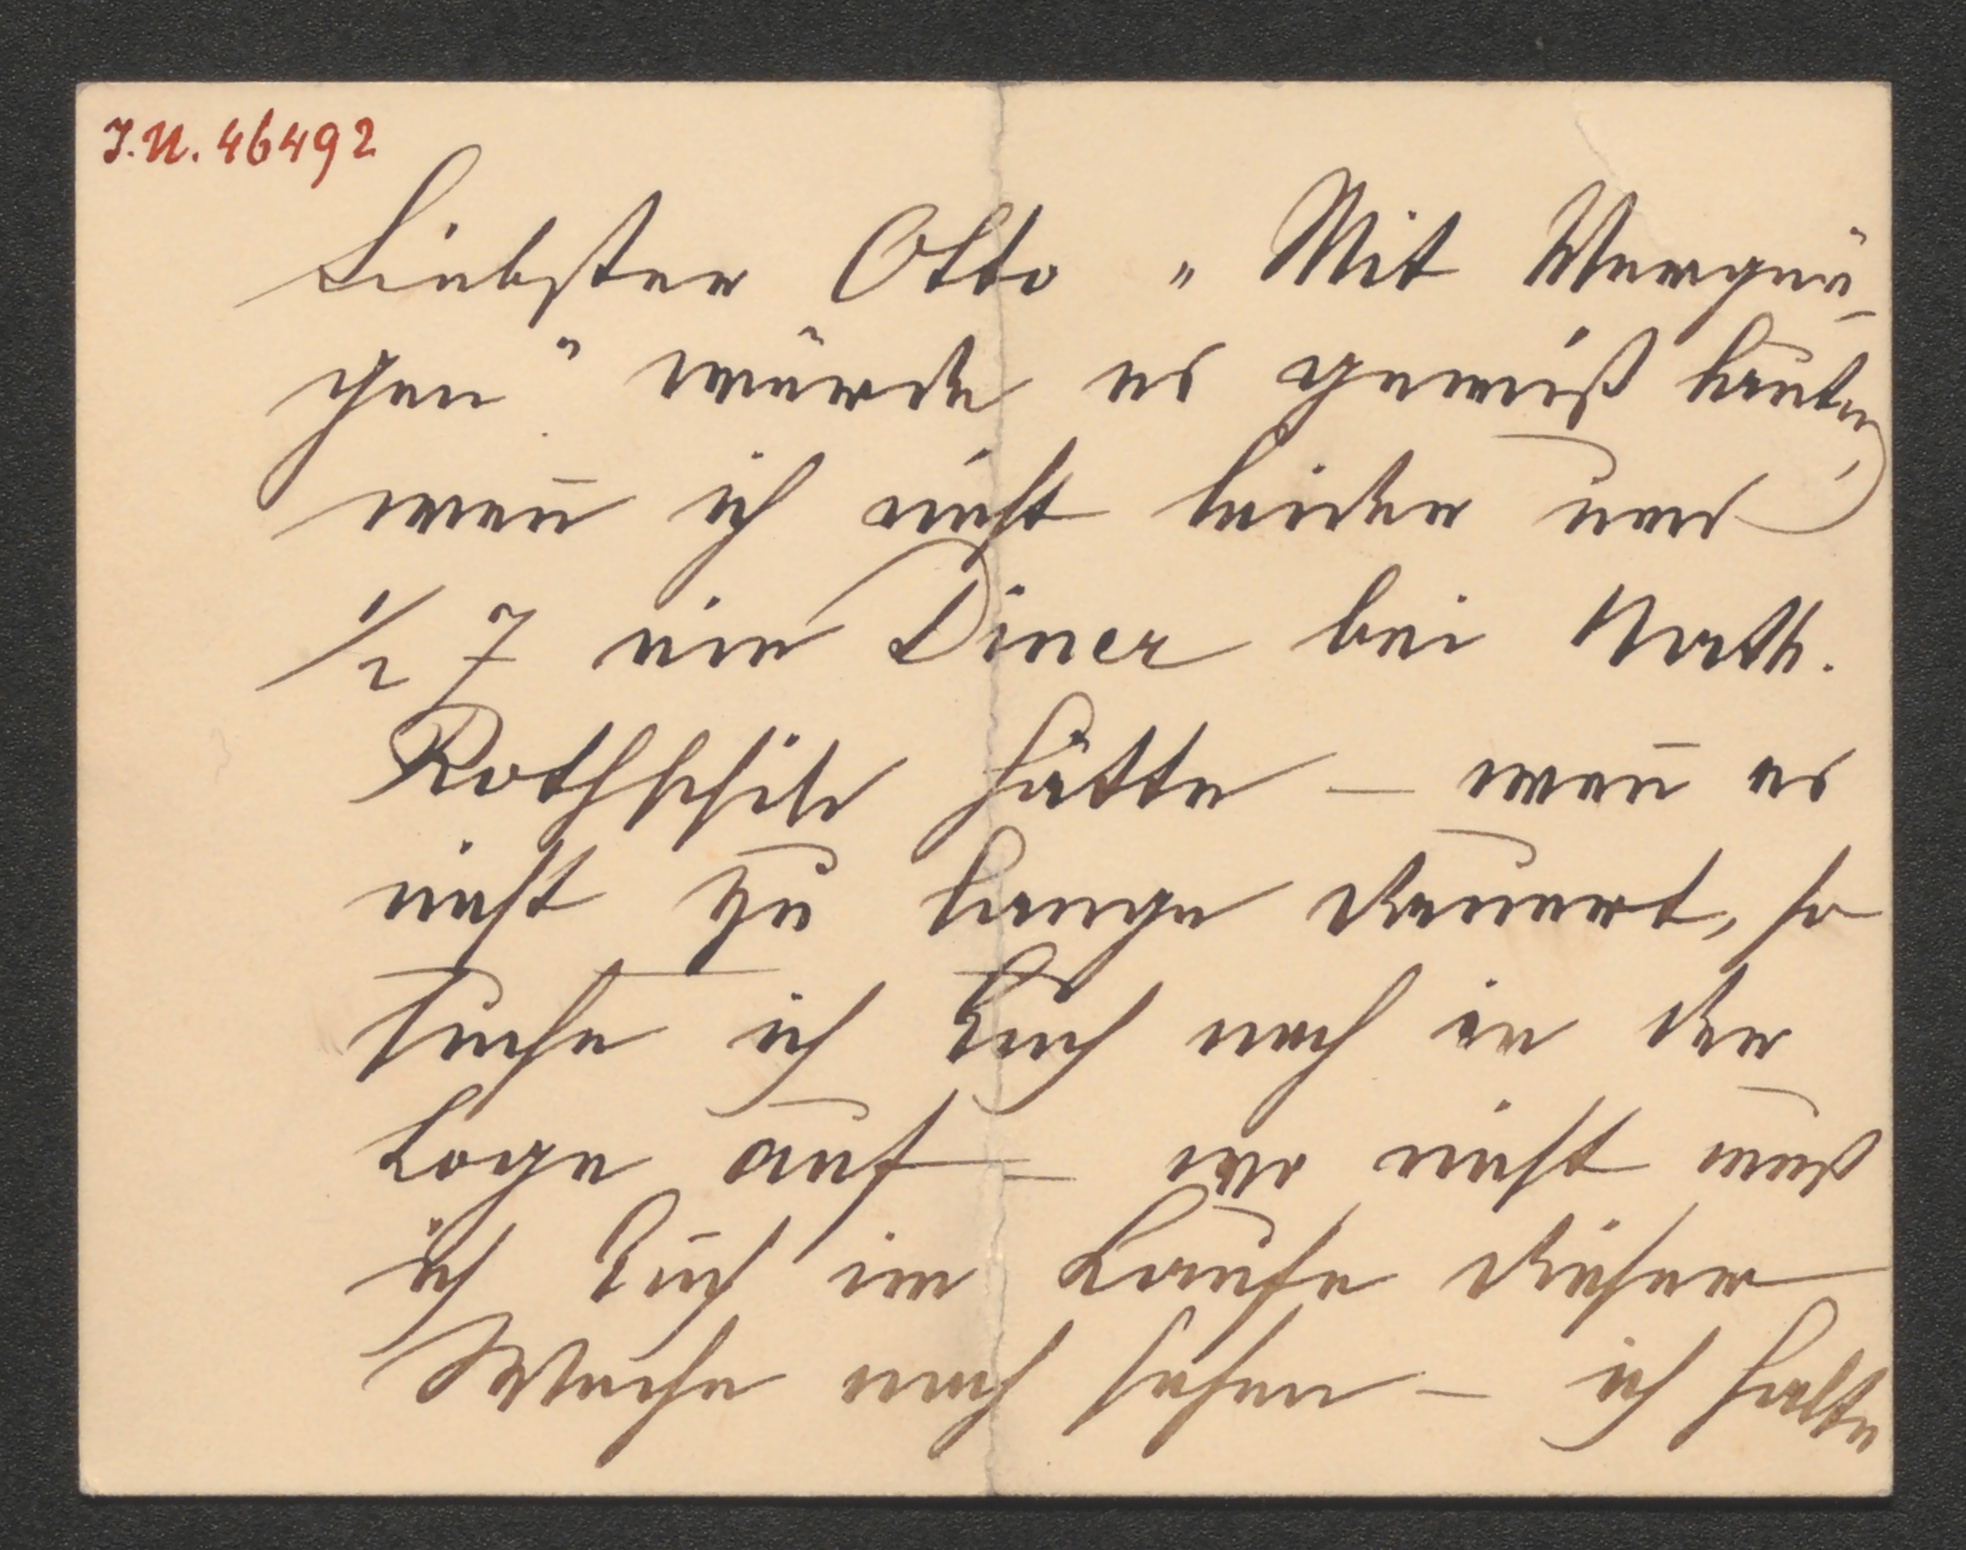 I.N. 46492
Liebster Otto „Mit Vergnü-
gen" würde es gewiß lauten,
wen̄ ich nicht leider um
½ 7 ein Diner bei Nath.
Rothschild hätte — wen̄ es
nicht zu lange dauert, so
suche ich Euch noch in der
Loge auf — wo nicht muß
ich Euch im Laufe dieser
Woche noch sehen — ich halte